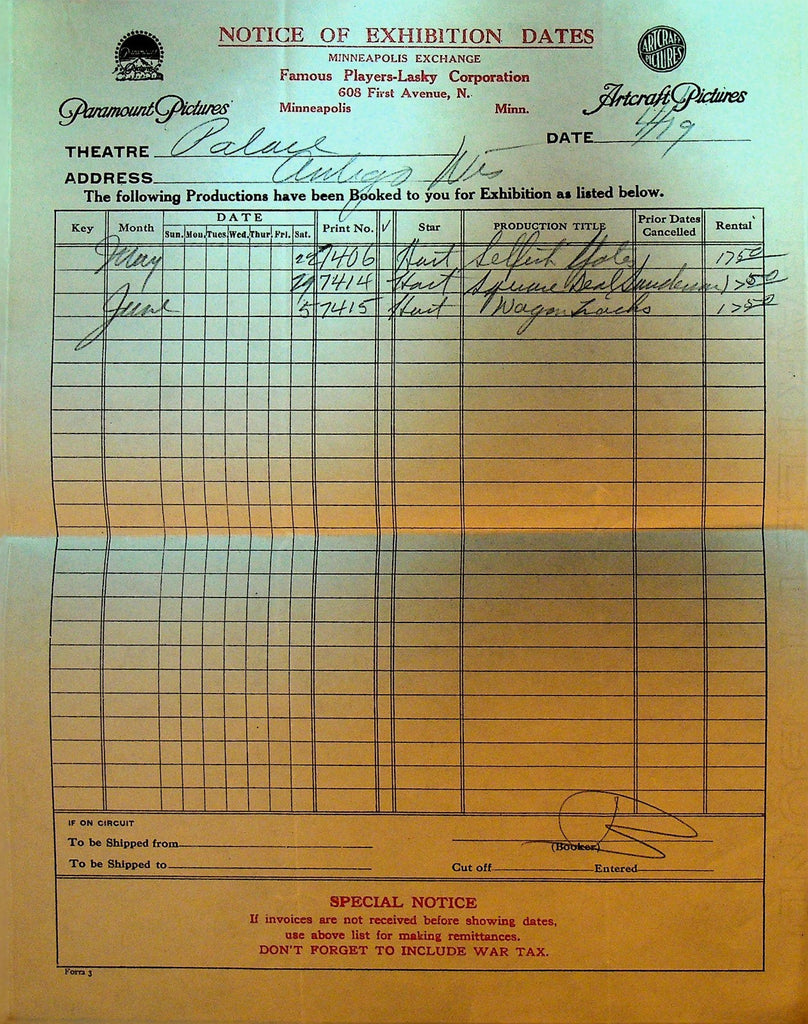 NOTICE OF EXHIBITION DATES
MINNEAPOLIS EXCHANGE
Famous Players-Lasky Corporation
608 First Avenue, N.
Minneapolis Minn.
Paramount Pictures
ARTCRAFT PICTURES
Artcraft Pictures
THEATRE Palace DATE 4/19
ADDRESS Antigo Wis
The following Productions have been Booked to you for Exhibition as listed below.
Key Month DATE Print No. √ Star PRODUCTION TITLE Prior Dates Cancelled Rental
Sun. Mon. Tues. Wed. Thur. Fri. Sat.
May 22 7406 Hart Selfish Yates 1750
29 7414 Hart Square Deal Sanderson 1750
June 5 7415 Hart Wagon Tracks 1750
IF ON CIRCUIT
To be Shipped from
(Booker)
To be Shipped to
Cut off Entered
SPECIAL NOTICE
If invoices are not received before showing dates,
use above list for making remittances.
DON'T FORGET TO INCLUDE WAR TAX.
Form 3